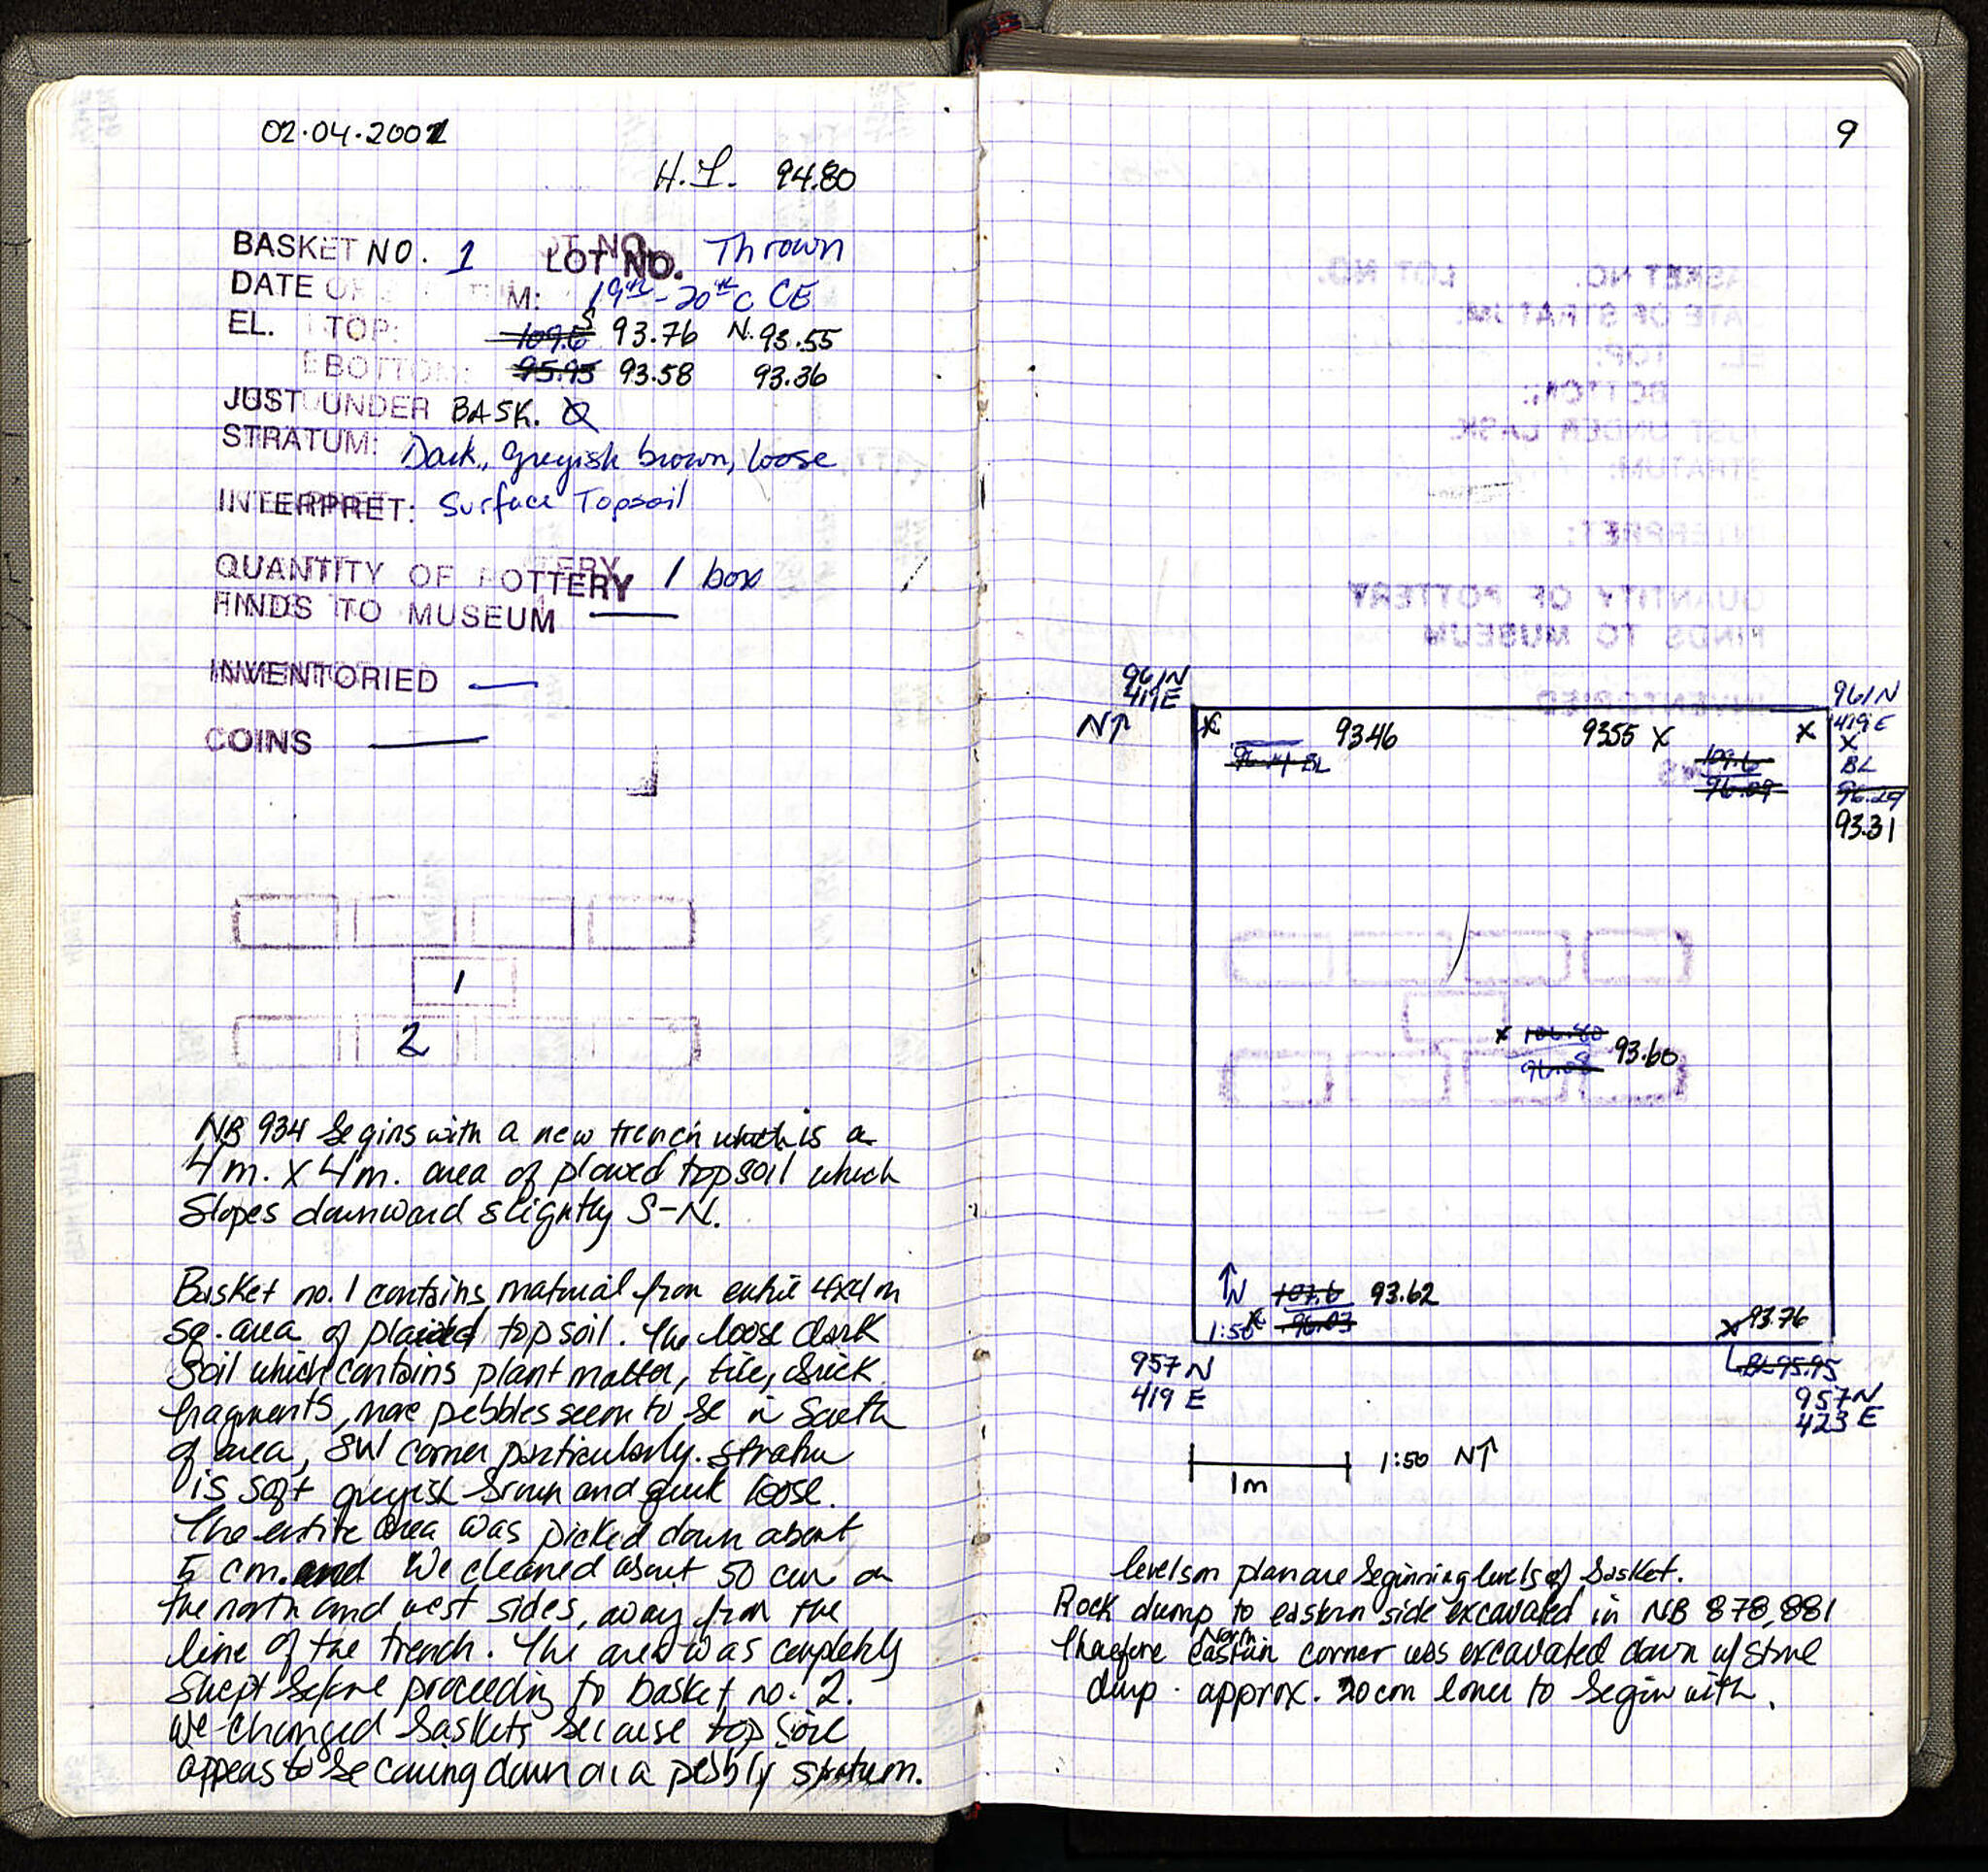 02.04.2002
H.I. 94.80
BASKET NO. 1 LOT NO. Thrown
DATE OF STRATUM: 19th-20th c CE
EL. TOP: 109.6 S 93.76 N. 93.55
BOTTOM: 95.95 93.58 93.36
JUST UNDER BASK. 0
STRATUM: Dark, greyish brown, loose
INTERPRET: Surface Topsoil
QUANTITY OF POTTERY 1 box
FINDS TO MUSEUM —
INVENTORIED —
COINS —
1
2
NB 934 begins with a new trench which is a
4m. x 4m. area of plowed topsoil which
slopes downward slightly S-N.
Basket no. 1 contains material from entire 4x4m
sq. area of plowed topsoil. The loose dark
soil which contains plant matter, tile, brick
fragments, more pebbles seem to be in South
of area, SW corner particularly. Stratum
is soft greyish brown and quite loose.
The entire area was picked down about
5 cm. and we cleaned about 50 cm on
the north and west sides, away from the
line of the trench. The area was completely
swept before proceeding to basket no. 2.
We changed baskets because top soil
appears to be coming down on a pebbly stratum.
9
961N
419E
961N
419E
N↑
X 9346 9355 X X
96.14 BL
109.6
96.09
X
BL
96.29
93.31
X 106.80 93.60
96.08
↑N 107.6 93.62
1:50 X 96.03
X 93.76
BL 95.95
957N
419E
957N
423E
1m 1:50 N↑
levels on plan are beginning levels of basket.
Rock dump to eastern side excavated in NB 878, 881
Therefore North eastern corner was excavated down w/ stone
dump. approx. 20cm lower to begin with.